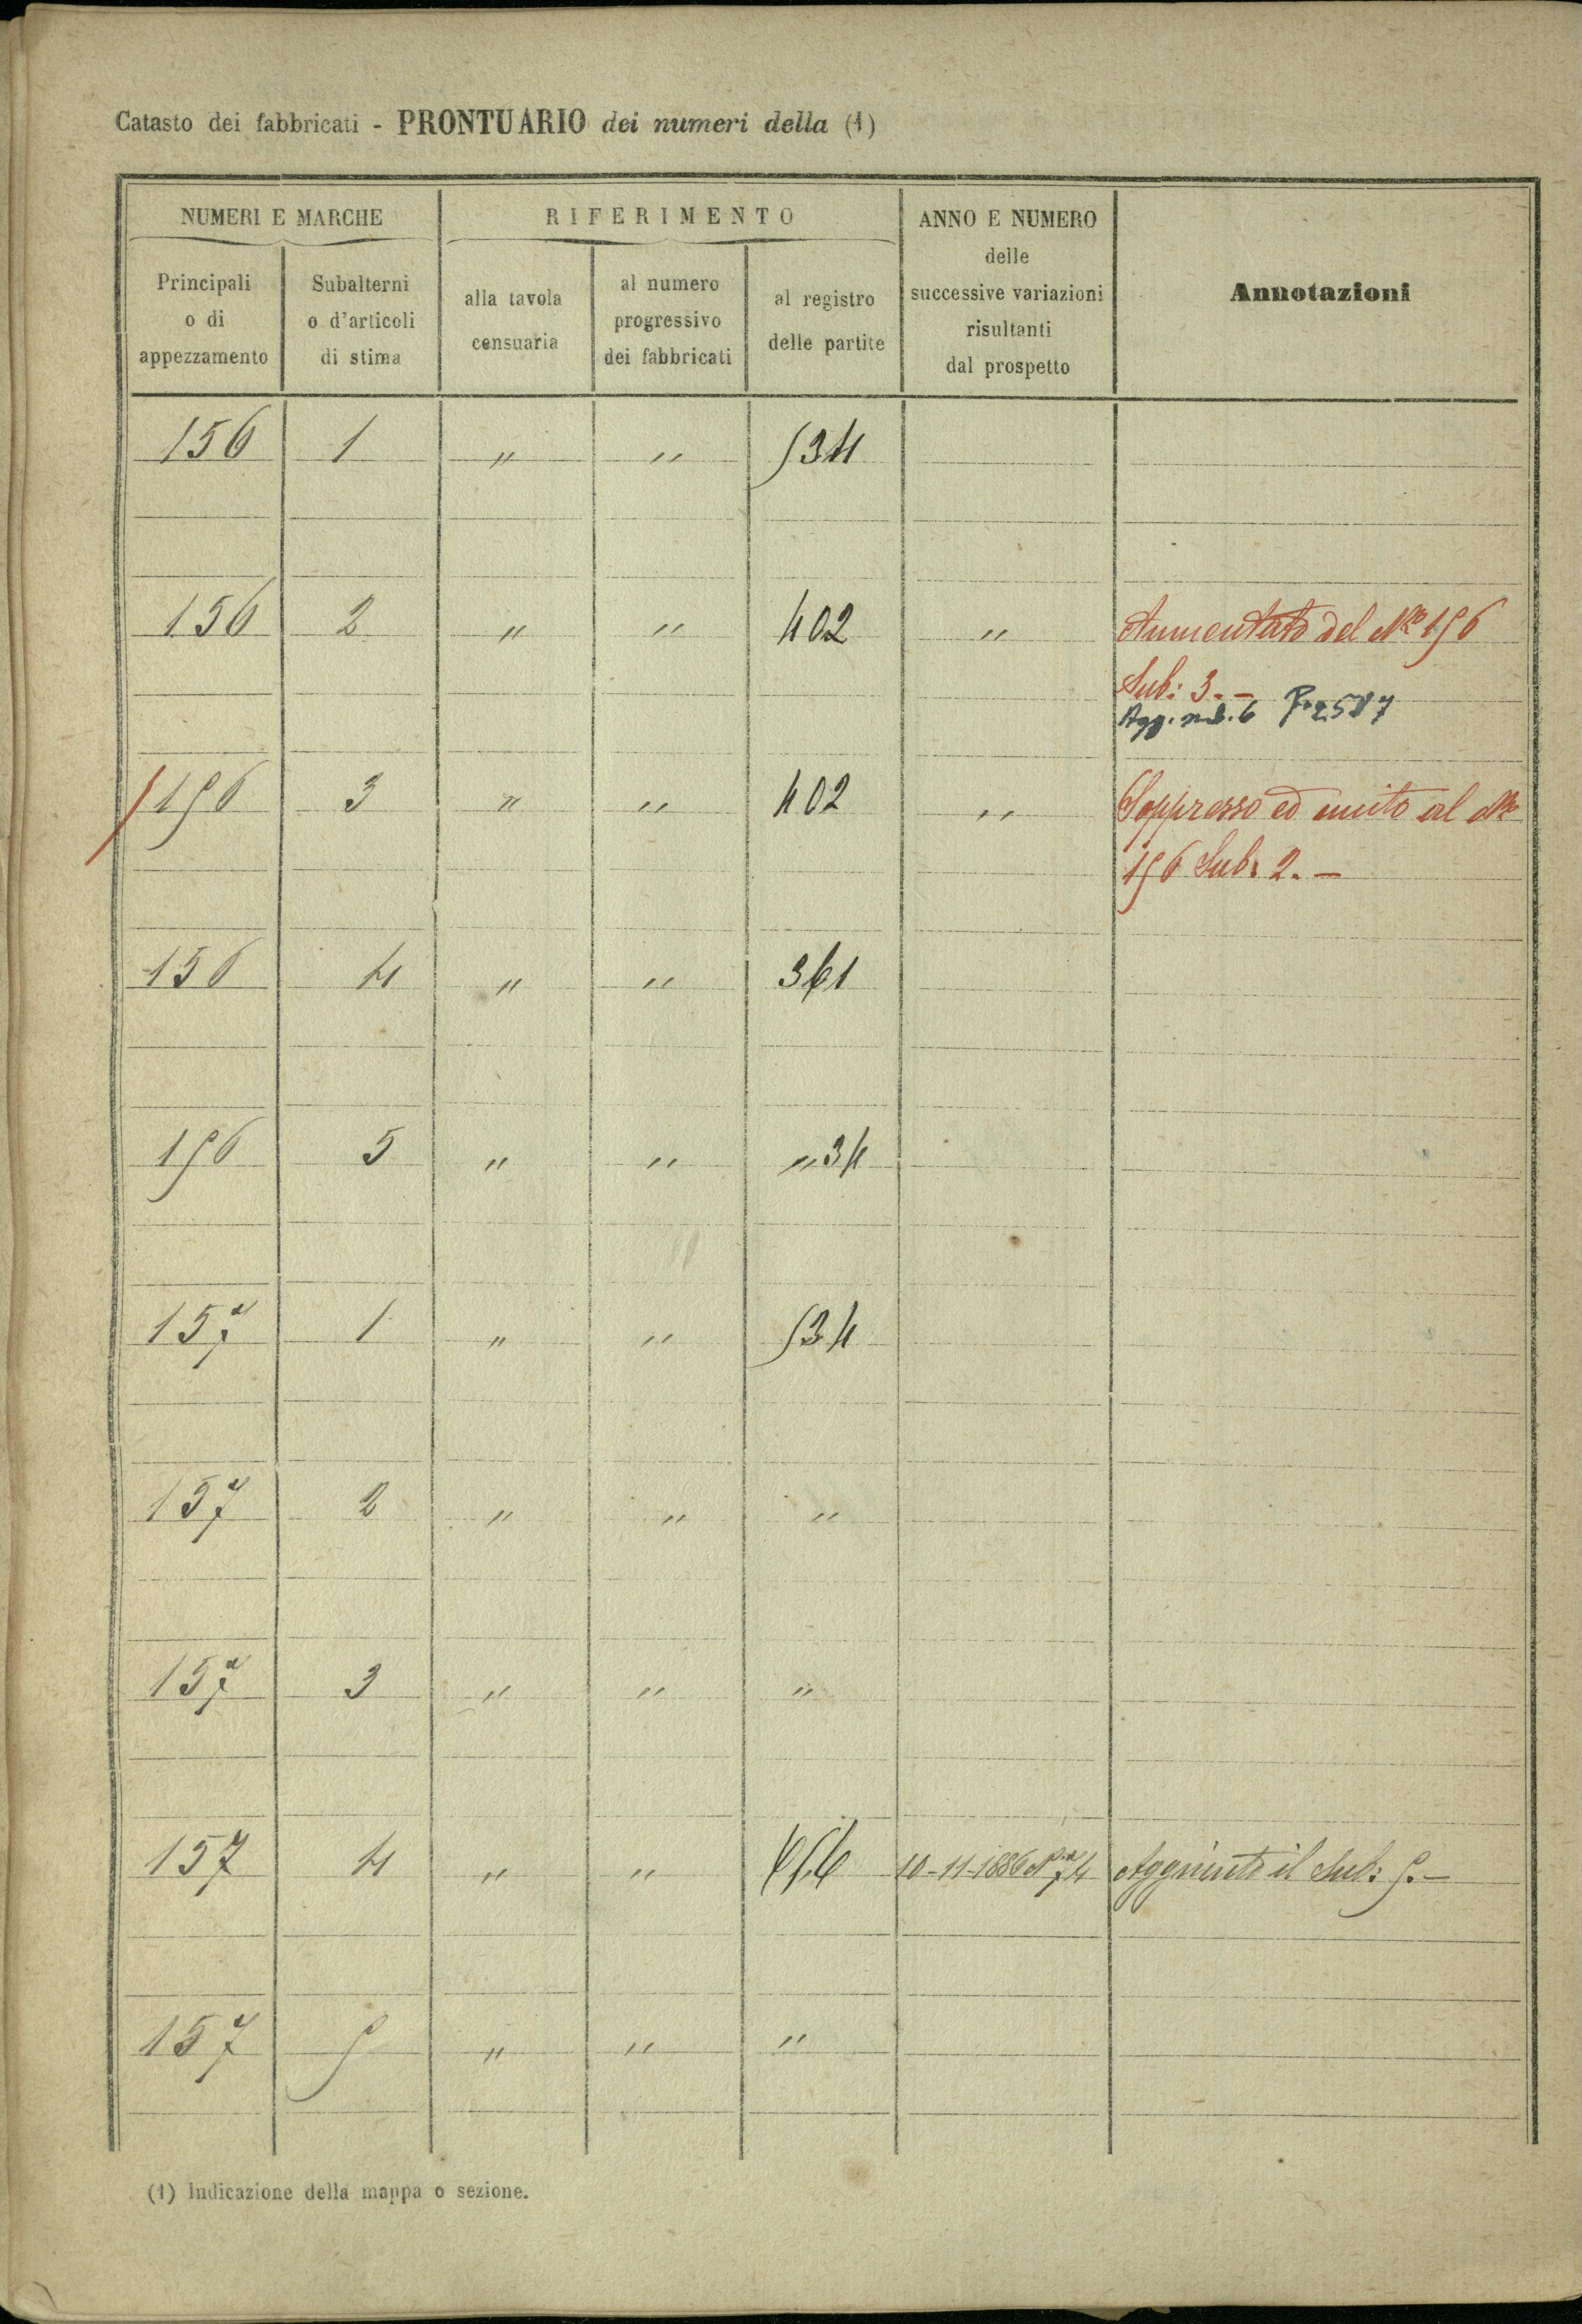 Catasto dei fabbricati - PRONTUARIO dei numeri della (1)
NUMERI E MARCHE
RIFERIMENTO
ANNO E NUMERO
delle
successive variazioni
risultanti
dal prospetto
Annotazioni
Principali
o di
appezzamento
Subalterni
o d'articoli
di stima
alla tavola
censuaria
al numero
progressivo
dei fabbricati
al registro
delle partite
156 1 " " 534
156 2 " " 402 " Aumentato del No 156
Sub: 3. -
Agg. sub. 6 P. 2587
156 3 " " 402 " Soppresso ed unito al No
156 Sub: 2. -
156 4 " " 361
156 5 " " " 34
157 1 " " 534
157 2 " " "
157 3 " " "
157 4 " " 656 10-11-1886 No 74 Aggiunto il Sub: 5. -
157 5 " " "
(1) Indicazione della mappa o sezione.